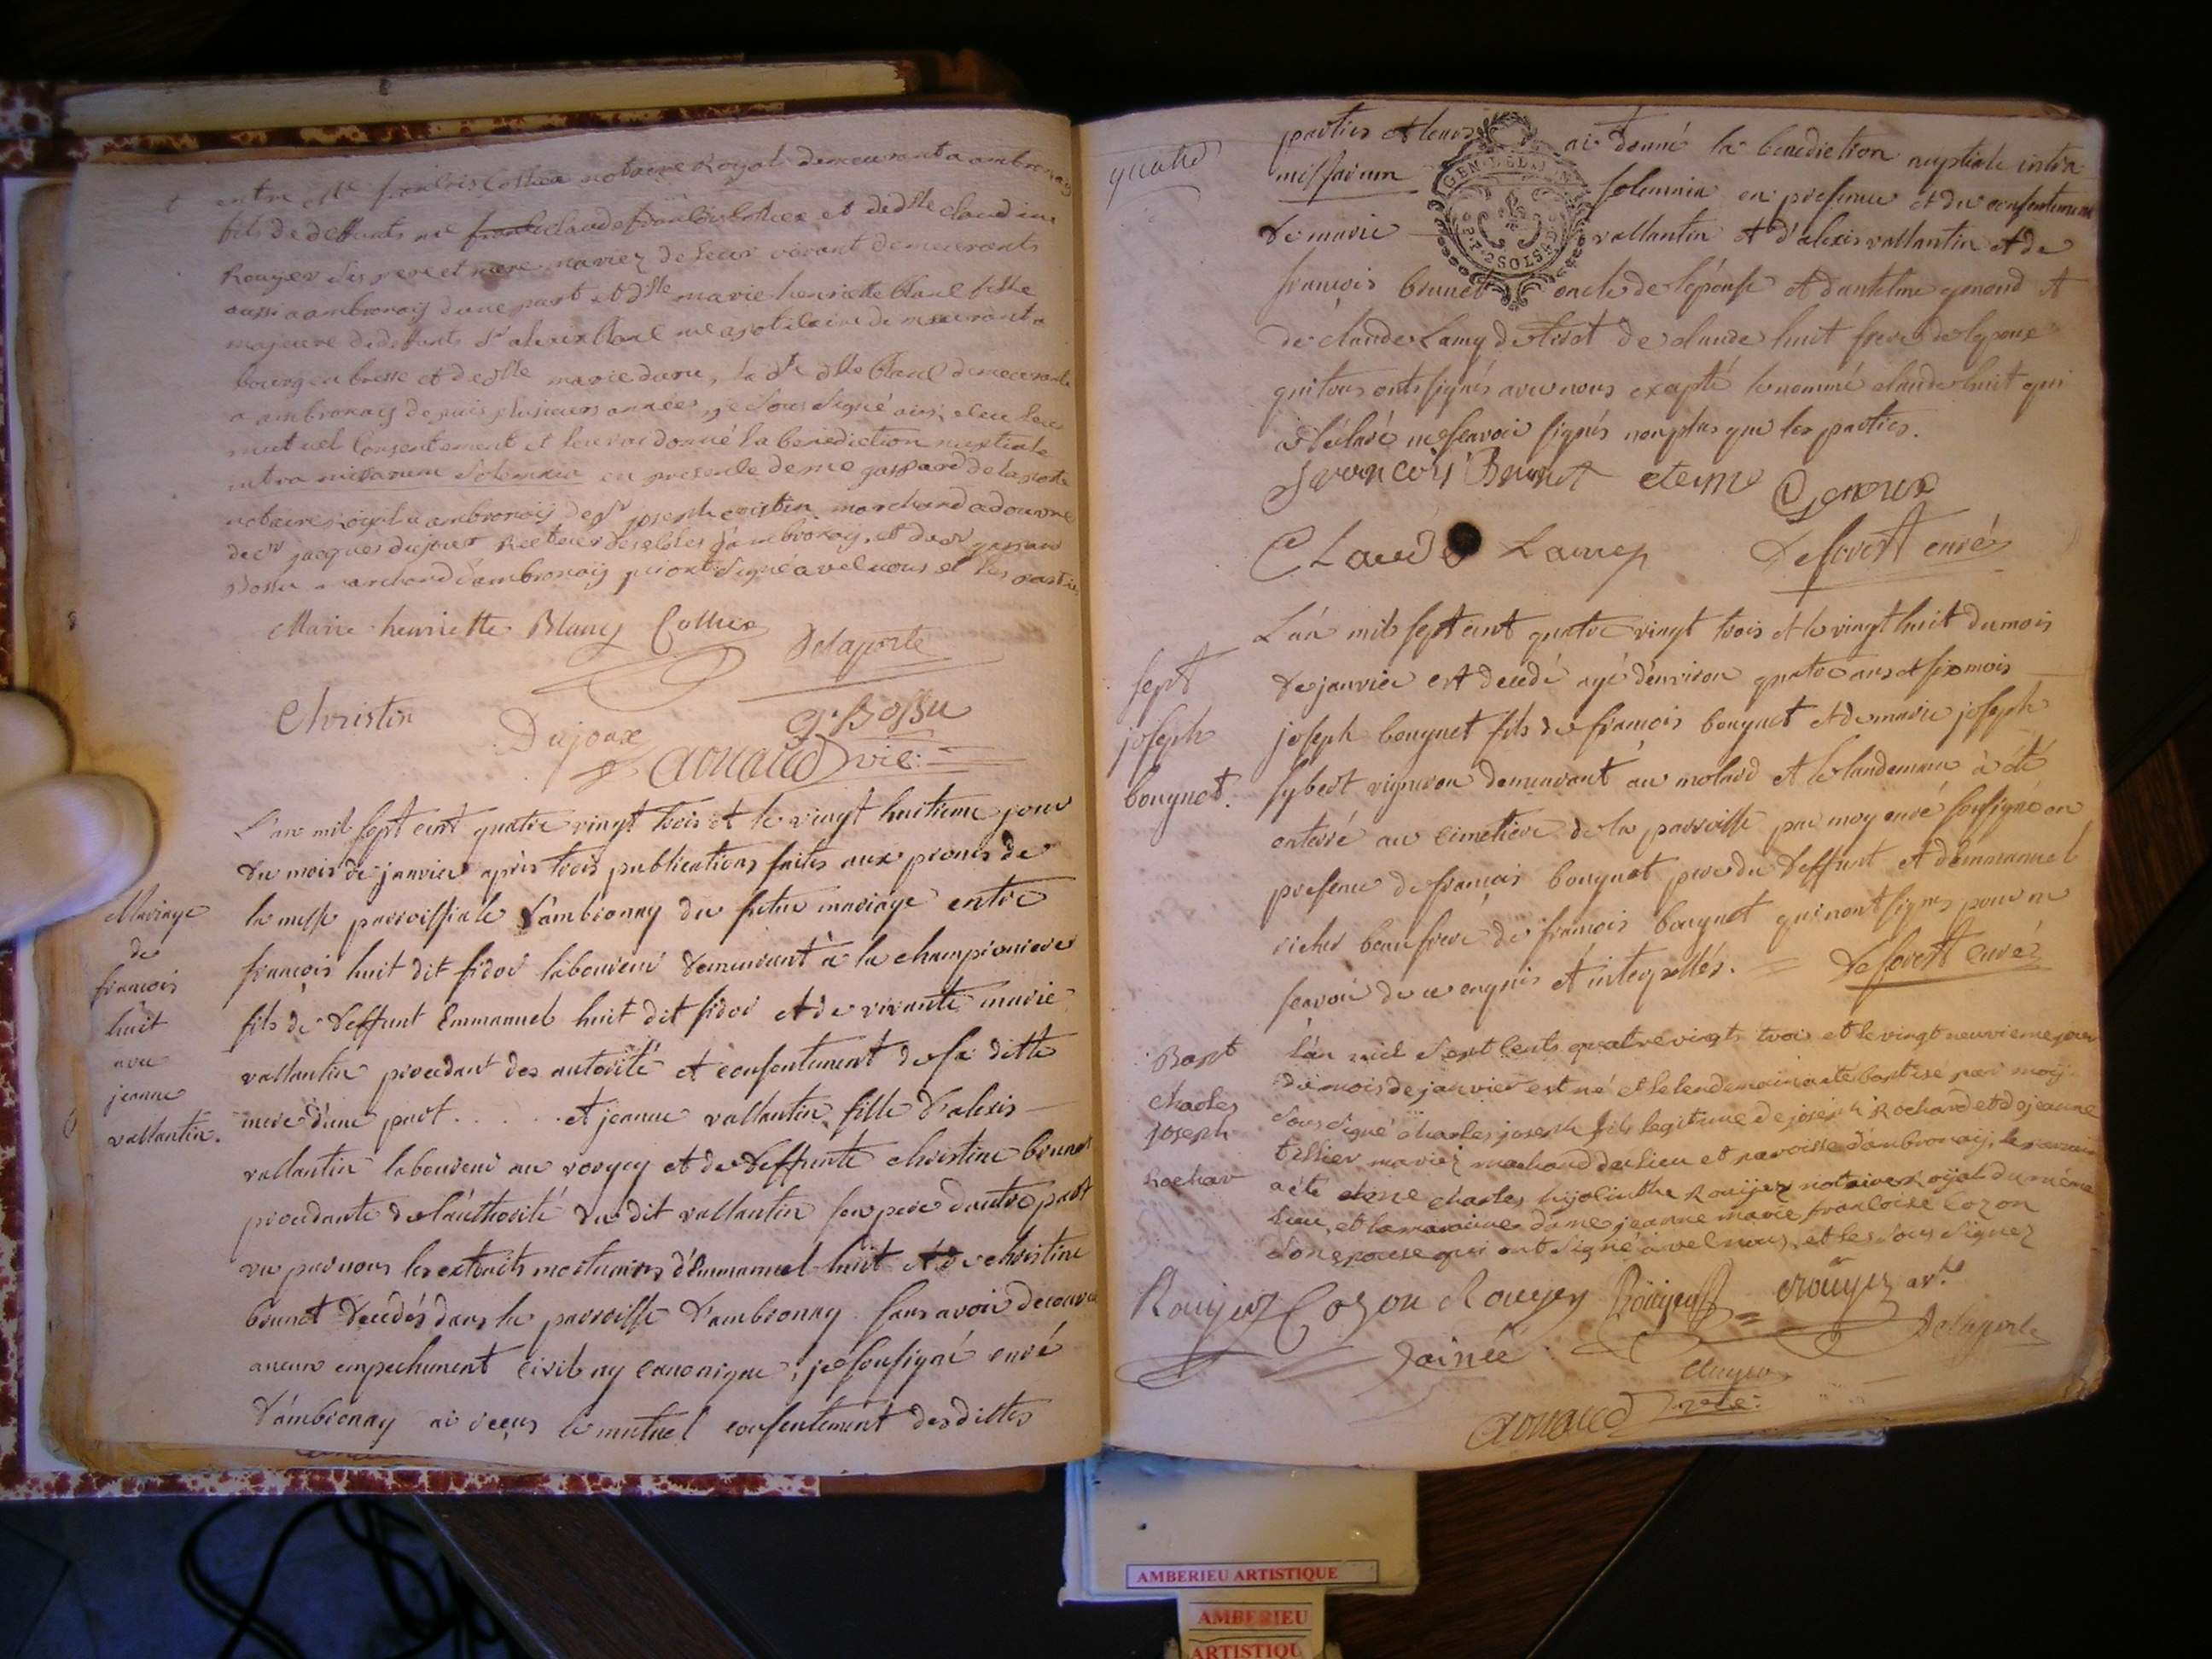 entre Me notaire Royal demeurant a ambronay
fils de deffunts me et de dlle claudine
Rouyer ses pere et mere mariez de leur vivant demeurants
aussi a ambronay d'une part et dlle marie henriette Blanc fille
majeure de deffunts Sr demeurant a
bourg en bresse et de dlle marie la dte dlle Blanc demeurante
a ambronay depuis plusieurs années, je sous signé ai reçeu leur
mutuel consentement et leur ai donné la benediction nuptiale
intra missarum solemnia en presence de me gaspard delaporte
notaire royal a ambronay de Sr joseph cristin marchand a
de Sr jacques dujoux Recteur des ecoles d'ambronay, et de Sr
Bossu marchand d'ambronay qui ont signé avec nous et les parties
Marie henriette Blanc
Delaporte
Christin
Dujoux
Bossu
vic:
L'an mil sept cent quatre vingt trois et le vingt huitieme jour
du mois de janvier après trois publications faites aux prones de
la messe parroissiale d'ambronay du futur mariage entre
françois huit dit fidor laboureur demeurant à la championiere
fils de deffunt Emmanuel huit dit fidor et de vivante marie
vallantin procedant des autorité et consentement de sa ditte
mere d'une part . . . . . et jeanne vallantin fille d'alexis
vallantin laboureur au et de deffunte christine brunet
procedante de l'authorité du dit vallantin son pere d'autre part
vu par nous les extraits mortuaires d'Emmanuel huit et de christine
brunet decedés dans la parroisse d'ambronay sans avoir decouvert
aucun empechement civil ny canonique ; je sousigné curé
d'ambronay ai reçus le mutuel consentement desdittes
Mariage
de
françois
huit
avec
jeanne
vallantin.
quatre
parties et leurs ai donné la benediction nuptiale intra
missarum solemnia en presence et du consentement
GEN LEDIN
2 SOLS
de marie vallantin et d'alexis vallantin et de
françois brunet oncle de l'épouse et d'antelme genoud et
de claude Lamy de claude huit frere de l'epoux
qui tous onts signés avec nous excepté le nommé claude huit qui
a déclaré ne sçavoir signés non plus que les parties.
françois Brunet
Claude Lamy Deforest curé
L'an mil sept cent quatre vingt trois et le vingt huit du mois
de janvier est decedé agé d'environ quatre ans et six mois
joseph bouquet fils de françois bouquet et de marie joseph
vigneron demeurant au molard et le landemain à été
enterré au cimetiere de la parroisse par moy curé sousigné en
presence de françois bouquet pere du deffunt et d'emmanuel
beaufrere de françois bouquet qui n'ont signés pour ne
sçavoir de ce enquis et interpellés. Deforest curé
Sept
joseph
bouquet.
Bapt
charles
joseph
Rochar
L'an mil sept cents quatre vingts trois et le vingt neuvieme jour
du mois de janvier est né et le lendemain a eté baptisé par moy
sous signé charles joseph fils legitime de joseph Rochard et de jeanne
tissier mariez marchand du lieu et paroisse d'ambronay, le parrain
a été charles hyacinthe Rouyer notaire Royal du même
lieu, et la marraine dame jeanne marie françoise Cozon
son epouse qui ont signé avec nous et les sous signez
Rouyer Cozon Rouyer Rouyer Rouyer
Delaporte
Rouyer
AMBERIEU ARTISTIQUE
AMBERIEU
ARTISTIQU